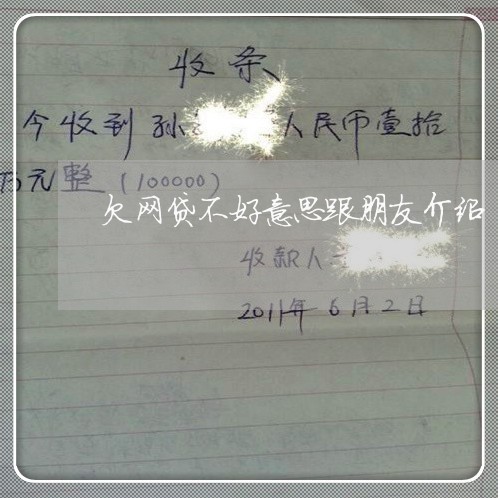 收条
今收到孙 人民币壹拾
万元整（100000）
欠网贷不好意思跟朋友介绍
收款人
2011年6月2日